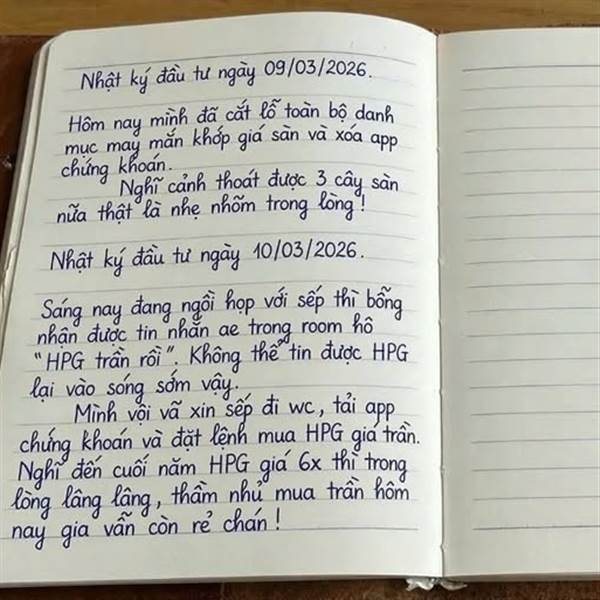 Nhật ký đầu tư ngày 09/03/2026.
Hôm nay mình đã cắt lỗ toàn bộ danh
mục may mắn khớp giá sàn và xóa app
chứng khoán.
Nghĩ cảnh thoát được 3 cây sàn
nữa thật là nhẹ nhõm trong lòng!
Nhật ký đầu tư ngày 10/03/2026.
Sáng nay đang ngồi họp với sếp thì bỗng
nhận được tin nhắn ae trong room hô
"HPG trần rồi". Không thể tin được HPG
lại vào sóng sớm vậy.
Mình vội vã xin sếp đi wc, tải app
chứng khoán và đặt lệnh mua HPG giá trần.
Nghĩ đến cuối năm HPG giá 6x thì trong
lòng lâng lâng, thầm nhủ mua trần hôm
nay gia vẫn còn rẻ chán!